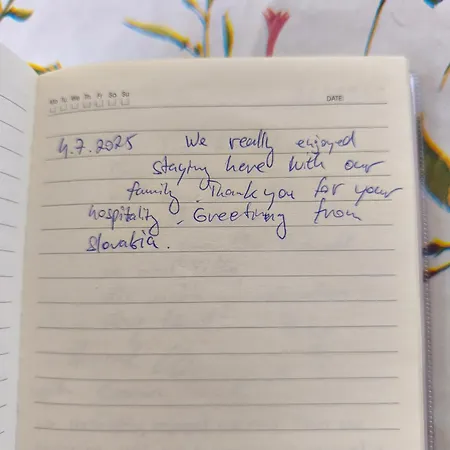 Mo Tu We Th Fr Sa Su
DATE:
4.7.2025 We really enjoyed
staying here with our
family. Thank you for your
hospitality. Greeting from
Slovakia.